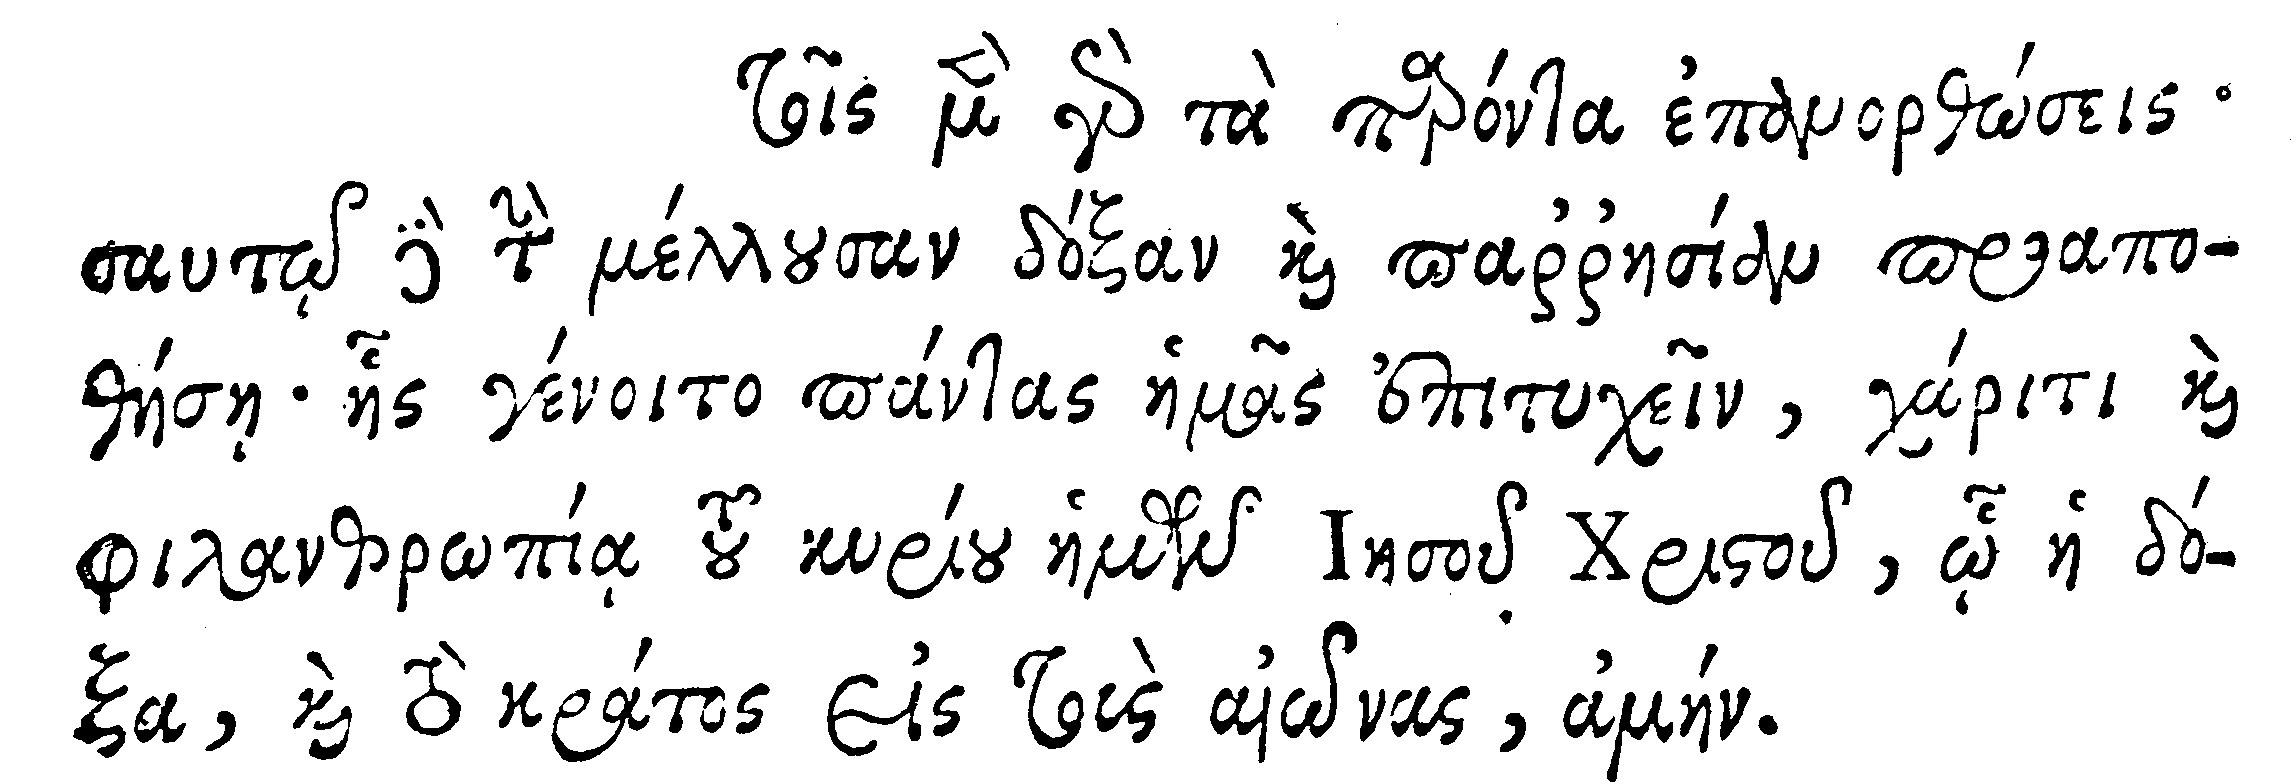 τοῖς μὲν γὰρ τὰ παρόντα ἐπανορθώσεις·
σαυτῷ δὲ τὴν μέλλουσαν δόξαν καὶ παῤῥησίαν προαπο-
θήσῃ· ἧς γένοιτο πάντας ἡμᾶς ἐπιτυχεῖν, χάριτι καὶ
φιλανθρωπίᾳ τοῦ κυρίου ἡμῶν Ιησοῦ Χριστοῦ, ᾧ ἡ δό-
ξα, καὶ τὸ κράτος εἰς τοὺς αἰῶνας, ἀμήν.